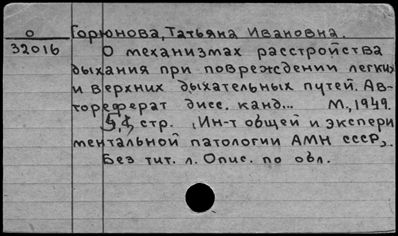 О Горюнова, Татьяна Ивановна.
32016 О механизмах расстройства
дыхания при повреждении легких
и верхних дыхательных путей. Ав-
тореферат дисс. канд... М., 1949.
стр. (Ин-т общей и экспери
ментальной патологии АМН СССР).
Без тит. л. Опис. по обл.